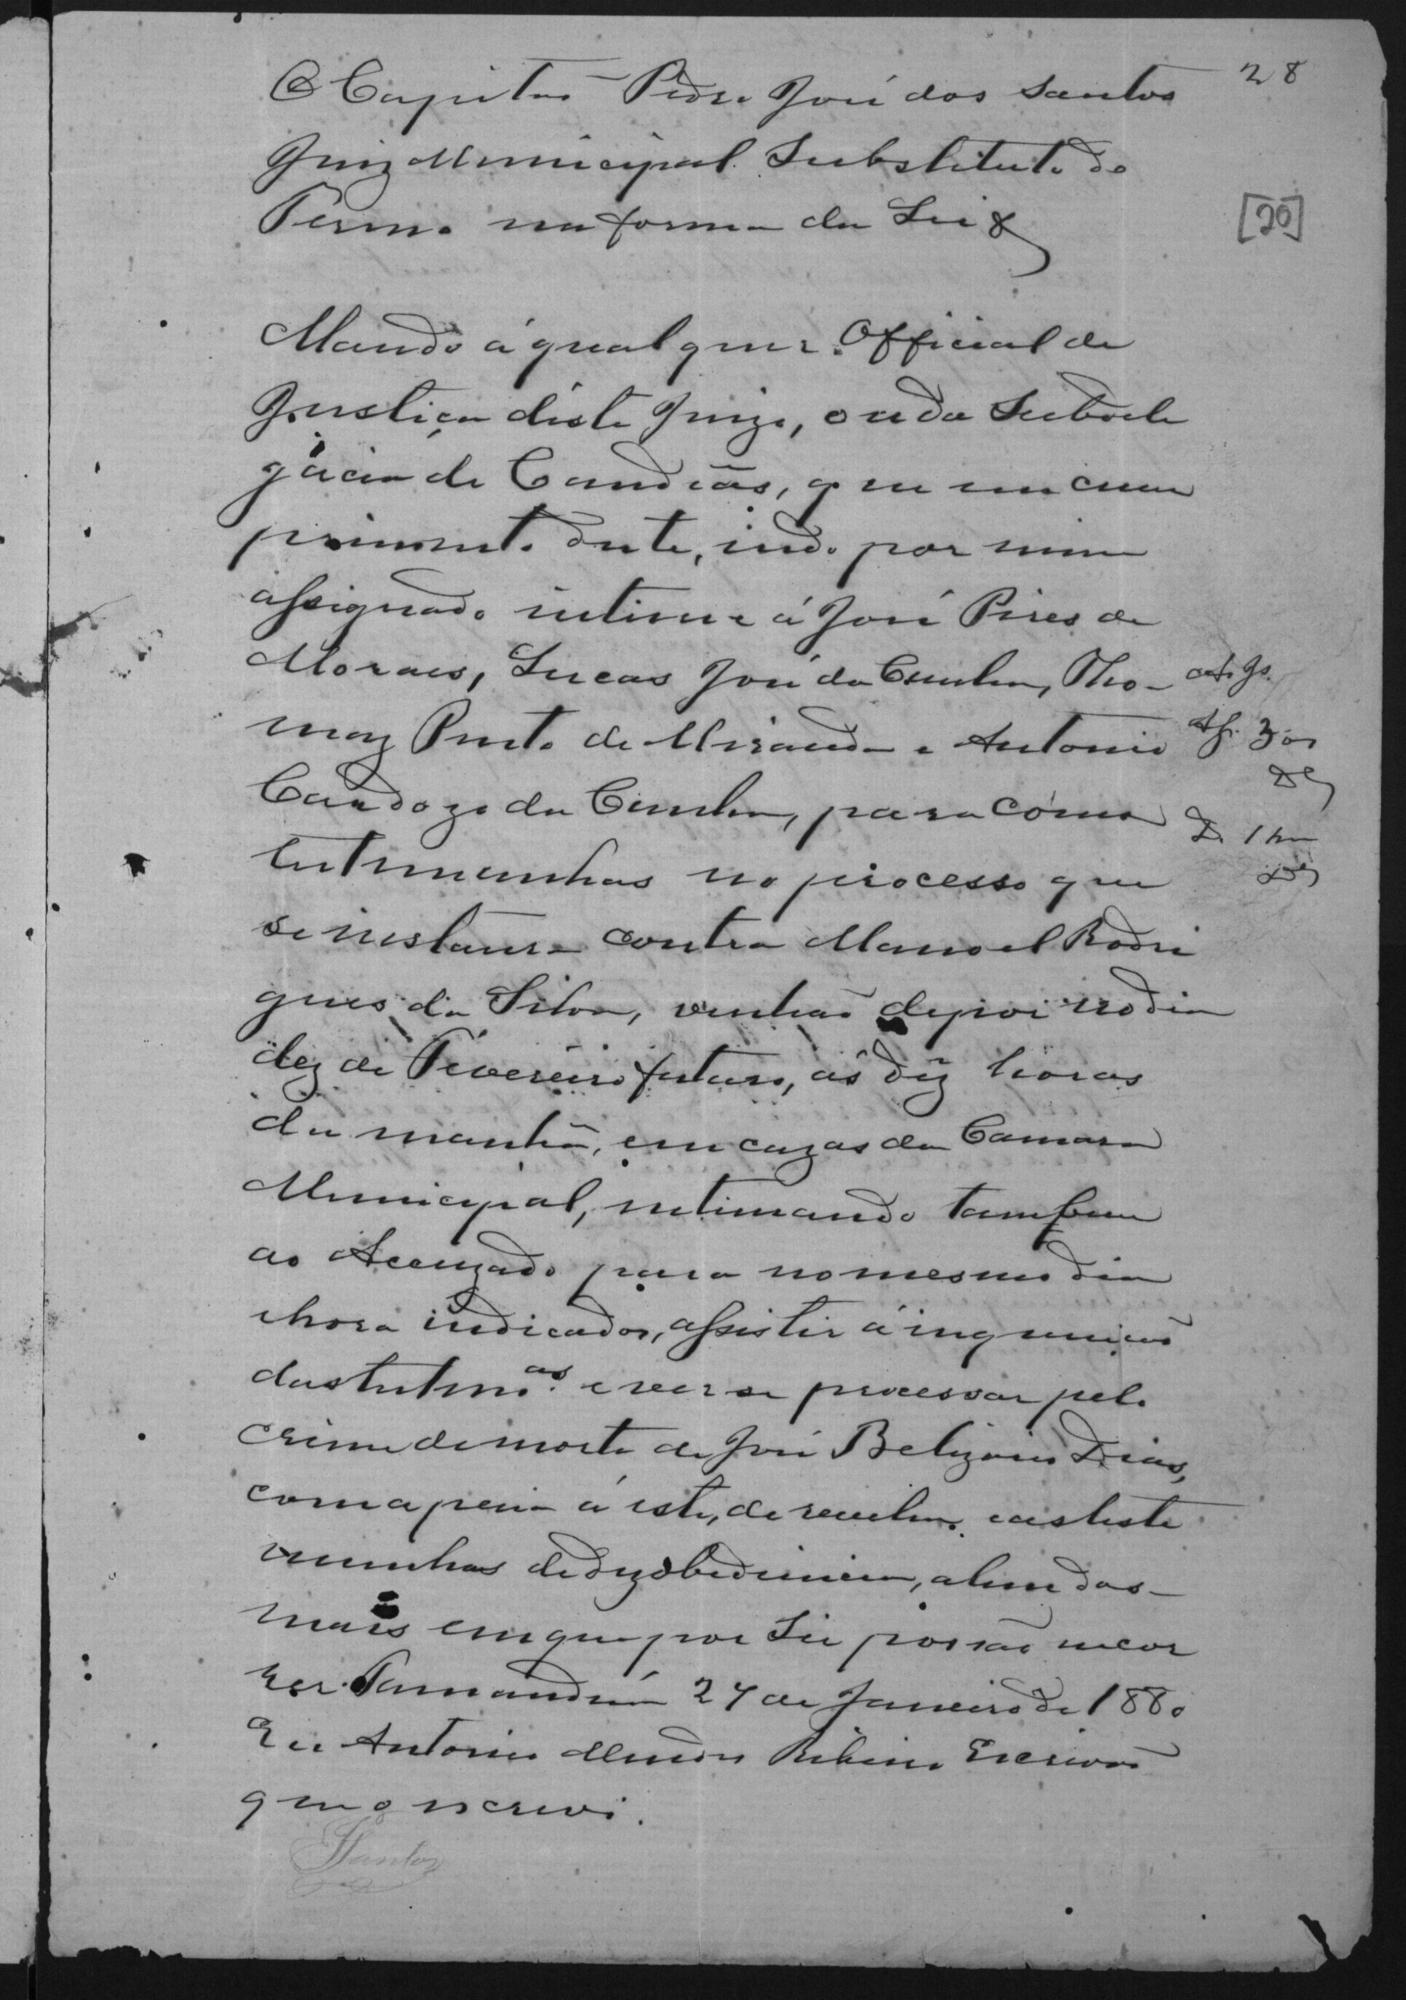 28
O Capitão Pedro José dos Santos
Juiz Municipal Substituto do
Termo na forma da Lei &
[20]
Mando á qualquer Official de
Justiça deste Juizo, ou da Subdele
gacia de Candeias, que em cum
primento deste, indo por mim
assignado intime á José Pires de
Moraes, Lucas José da Cunha, Tho-
maz Pinto de Miranda e Antonio
Cardozo da Cunha, para como
testimunhas no processo que
se instaura contra Manoel Rodri
gues da Silva, venhão depoi no dia
dez de Fevereiro futuro, ás dez horas
da manhã, em cazas da Camara
Municipal, intimando tambem
ao Accuzado para no mesmo dia
e hora indicados, assistir á inquirição
das testim.as e ver se processar pelo
crime de morte de José Belizario Dias,
com a pena á este, de revelia e as teste
munhas de dezobediencia, alem das
mais em que por Lei possão incor
rer. Tamanduá 27 de Janeiro de 1880
Eu Antonio Mendes Ribeiro Escrivão
que o escrevi.
Santos